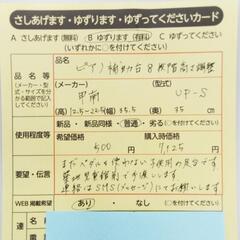 さしあげます・ゆずります・ゆずってくださいカード
A さしあげます(無料) B ゆずります(有料) C ゆずってください
(いずれかに○を付けてください)
品名等
(メーカー・型式・サイズ・色が分かる範囲で記入してください)
ピアノ補助台 8段階高さ調整
(メーカー)
甲南
(型)
UP-S
(高)12.5~22.5 (幅)35.5 (奥)35 cm
使用程度等
新品・新品同様・普通・劣る(○を付ける)
希望価格
500 円
購入時価格
7,125 円
要望・伝言
まだペダルを使わない子供用の足台です
築地児童館前で手渡します
連絡はSMS(メッセージ)にてお願いします
WEB掲載希望
あり・なし (○を付けてください)